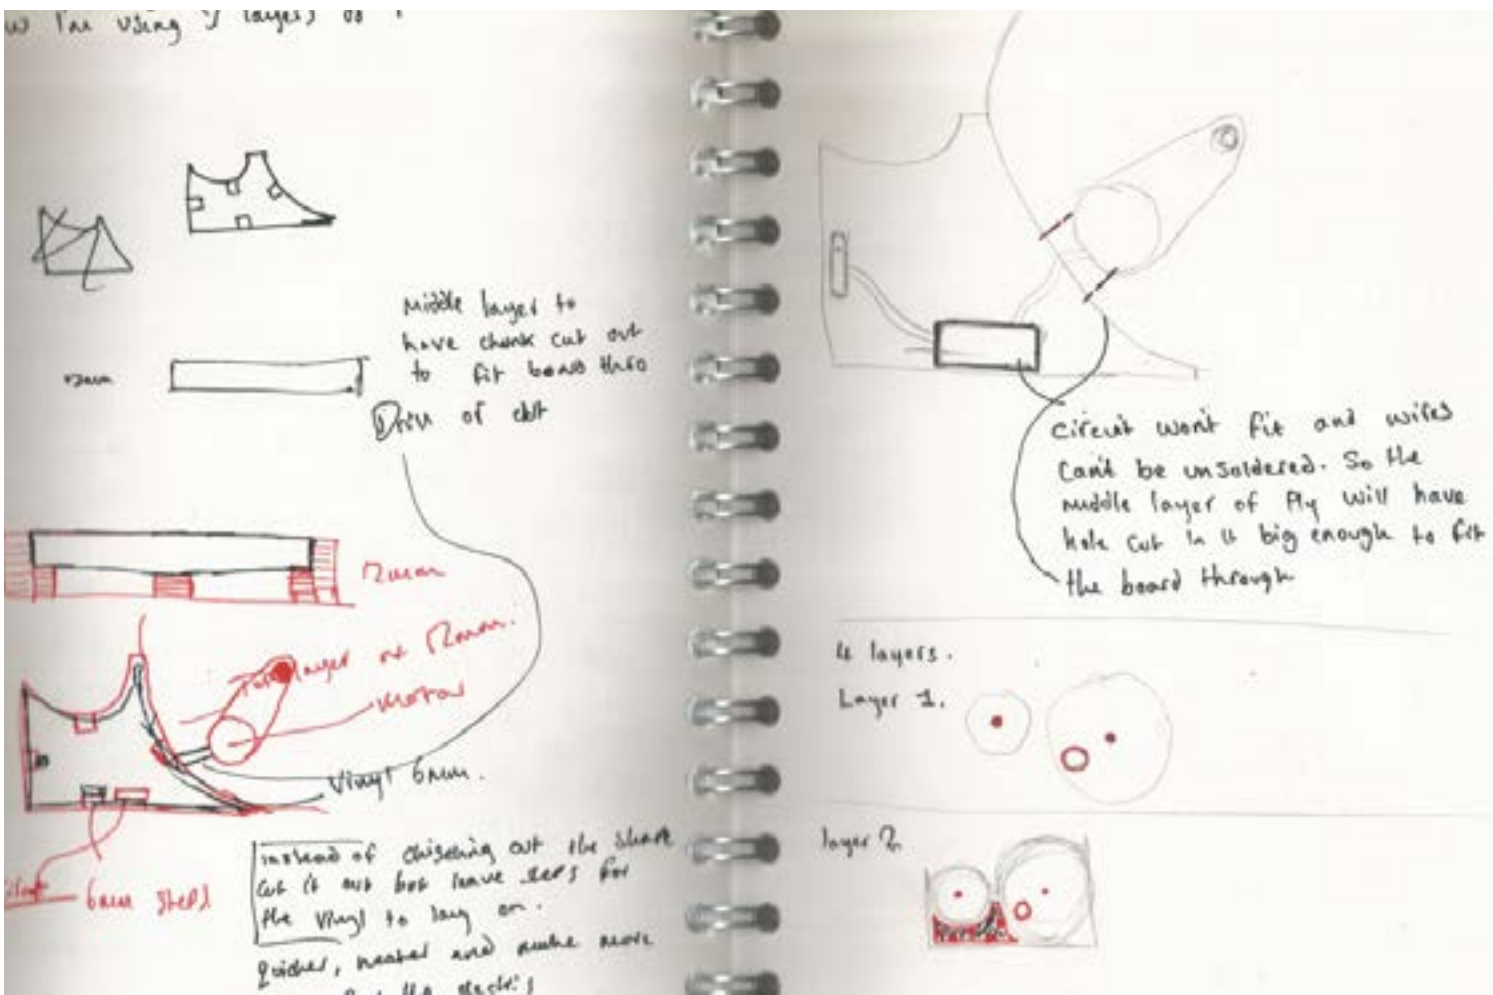 I'm using layers of
Middle layer to
have chunk cut out
to fit board thro
12mm
of
12mm
layer of 12mm.
Motor
Vinyl 6mm.
6mm steps
instead of chiseling out the shape
cut it out but leave steps for
the vinyl to lay on.
quicker, neater and make more
the
circuit won't fit and wires
can't be unsoldered. So the
middle layer of Ply will have
hole cut in it big enough to fit
the board through
4 layers.
Layer 1.
layer 2